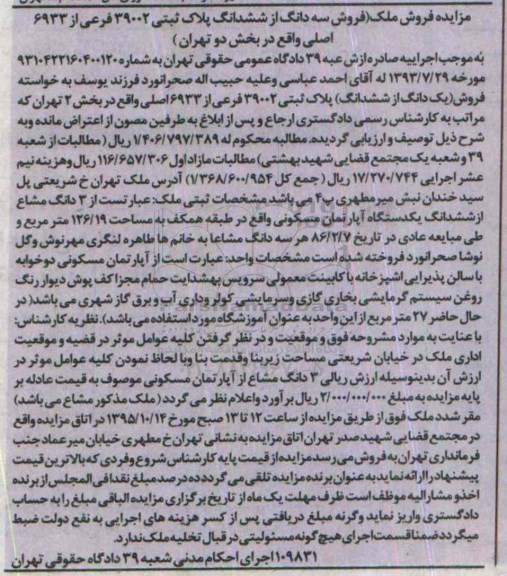 مزایده فروش ملک(فروش سه دانگ از ششدانگ پلاک ثبتی ۳۹۰۰۲ فرعی از ۶۹۳۳
اصلی واقع در بخش دو تهران )
به موجب اجراییه صادره از ش عبه ۳۹ دادگاه عمومی حقوقی تهران به شماره ۹۳۱۰۴۲۲۱۶۰۴۰۰۱۲۰
مورخه ۱۳۹۳/۷/۲۹ له آقای احمد عباسی وعلیه حبیب اله صحرانورد فرزند یوسف به خواسته
فروش(یک دانگ از ششدانگ) پلاک ثبتی ۳۹۰۰۲ فرعی از ۶۹۳۳ اصلی واقع در بخش ۲ تهران که
مراتب به کارشناس رسمی دادگستری ارجاع و پس از ابلاغ به طرفین مصون از اعتراض مانده وبه
شرح ذیل توصیف و ارزیابی گردیده. مطالبه محکوم له ۱/۴۰۶/۷۹۷/۳۸۹ ریال ( مطالبات از شعبه
۳۹ و شعبه یک مجتمع قضایی شهید بهشتی) مطالبات مازاد اول ۱۱۶/۶۵۷/۳۰۶ ریال و هزینه نیم
عشر اجرایی ۱۷/۲۷۰/۷۴۴ ریال ( جمع کل ۱/۳۶۸/۶۰۰/۹۵۴) آدرس ملک تهران خ شریعتی پل
سید خندان نبش میرمطهری پ۴ می باشد مشخصات ثبتی ملک: عبارتست از ۳ دانگ مشاع
از ششدانگ یکدستگاه آپارتمان مسکونی واقع در طبقه همکف به مساحت ۱۲۶/۱۹ متر مربع و
طی مبایعه عادی در تاریخ ۸۶/۲/۷ هر سه دانگ مشاعا به خانم ها طاهره لنگری مهرنوش وگل
نوشا صحرانورد فروخته شده است مشخصات واحد: عبارت است از آپارتمان مسکونی دوخوابه
با سالن پذیرایی اشپزخانه با کابینت معمولی سرویس بهشدایت حمام مجزا کف پوش دیوار رنگ
روغن سیستم گرمایشی بخاری گازی وسرمایشی کولر وداری آب و برق گاز شهری می باشد( در
حال حاضر ۲۷ متر مربع از این واحد به عنوان آموزشگاه مورد استفاده می باشد). نظریه کارشناس:
با عنایت به موارد مشروحه فوق و موقعیت و در نظر گرفتن کلیه عوامل موثر در قضیه و موقعیت
اداری ملک در خیابان شریعتی مساحت زیربنا وقدمت بنا وبا لحاظ نمودن کلیه عوامل موثر در
ارزش آن بدینوسیله ارزش ریالی ۳ دانگ مشاع از آپارتمان مسکونی موصوف به قیمت عادله بر
پایه مزایده به مبلغ ۲/۰۰۰/۰۰۰/۰۰۰ ریال برآورد و اعلام نظر می گردد ( ملک مذکور مشاع می باشد)
مقر شدد ملک فوق از طریق مزایده از ساعت ۱۲ تا ۱۳ صبح مورخ ۱۳۹۵/۱۰/۱۴ در اتاق مزایده واقع
در مجتمع قضایی شهید صدر تهران اتاق مزایده به نشانی تهران خ مطهری خیابان میرعماد جنب
فرمانداری تهران به فروش می رسد مزایده از قیمت پایه کارشناس شروع و فردی که بالاترین قیمت
پیشنهاد را ارائه نماید به عنوان برنده مزایده تلقی می گردد ده درصد مبلغ نقدا فی المجلس از برنده
اخذ و مشارالیه موظف است ظرف مهلت یک ماه از تاریخ برگزاری مزایده الباقی مبلغ را به حساب
دادگستری واریز نماید وگرنه مبلغ دریافتی پس از کسر هزینه های اجرایی به نفع دولت ضبط
میگردد ضمنا قسمت اجرای هیچ گونه مسئولیتی در قبال تخلیه ملک ندارد.
۱۰۹۸۳۱/ اجرای احکام مدنی شعبه ۳۹ دادگاه حقوقی تهران